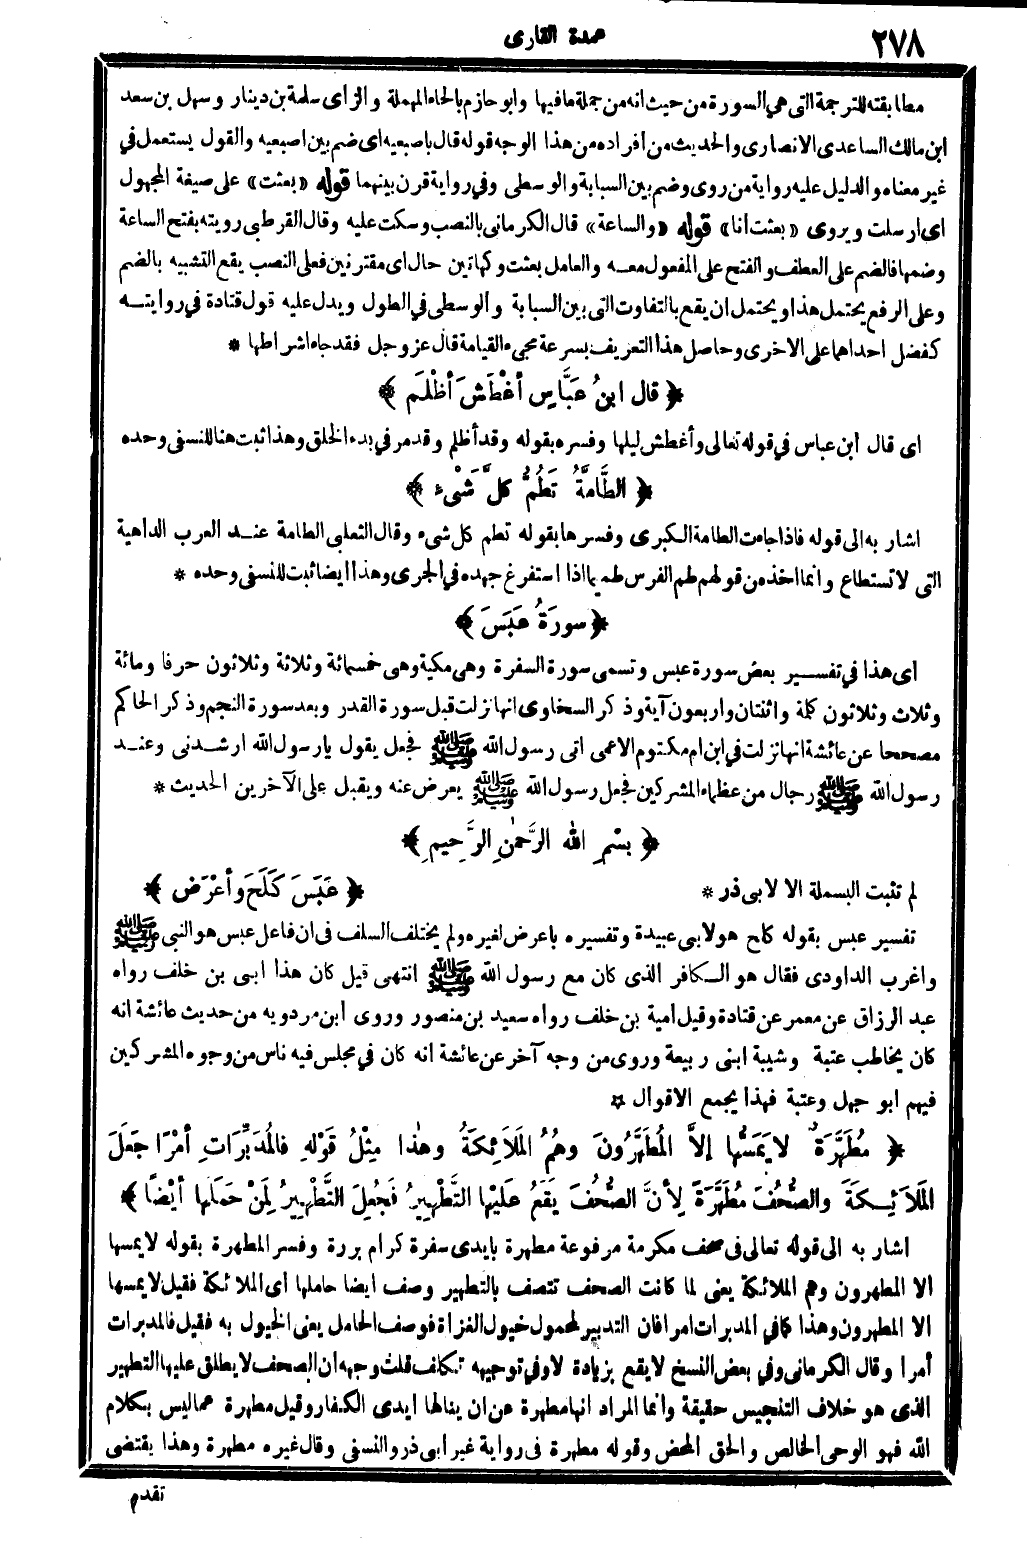 ٢٧٨
عمدة القارى
مطابقته للترجمة التى هي السورة من حيث انه من جملة ما فيها وابو حازم بالحاء المهملة والزاى سلمة بن دينار وسهل بن سعد
ابن مالك الساعدى الانصارى والحديث من أفراده من هذا الوجه قوله قال باصبعيه اى ضم بين اصبعيه والقول يستعمل في
غير معناه والدليل عليه رواية من روى وضم بين السبابة والوسطى وفي رواية قرن بينهما قوله «بعثت» على صيغة المجهول
اى ارسلت ويروى «بعثت انا» قوله «والساعة» قال الكرمانى بالنصب وسكت عليه وقال القرطبى رويته بفتح الساعة
وضمها فالضم على العطف والفتح على المفعول معه والعامل بعثت وكهاتين حال اى مقترنين فعلى النصب يقع التشبيه بالضم
وعلى الرفع يحتمل هذا ويحتمل ان يقع بالتفاوت التى بين السبابة والوسطى في الطول ويدل عليه قول قتادة في روايته
كفضل احداهما على الاخرى وحاصل هذا التعريف بسرعة مجىء القيامة قال عز وجل فقد جاء اشراطها *
﴿ قال ابنُ عَبَّاسٍ أغْطَشَ أظْلَمَ ﴾
اى قال ابن عباس في قوله تعالى وأغطش ليلها وفسره بقوله وقد أظلم وقد مر في بدء الخلق وهذا ثبت هنا للنسفى وحده
﴿ الطَّامَّةُ تَطُمُّ كلَّ شَىْءٍ ﴾
اشار به الى قوله فاذا جاءت الطامة الكبرى وفسرها بقوله تطم كل شىء وقال الثعلبى الطامة عند العرب الداهية
التى لا تستطاع وانما اخذه من قولهم طم الفرس طميما اذا استفرغ جهده في الجرى وهذا ايضا ثبت للنسفى وحده *
﴿ سورَةُ عَبَسَ ﴾
اى هذا في تفسير بعض سورة عبس وتسمى سورة السفرة وهى مكية وهى خمسمائة وثلاثة وثلاثون حرفا ومائة
وثلاث وثلاثون كلمة واثنتان واربعون آية وذكر السخاوى انها نزلت قبل سورة القدر وبعد سورة النجم وذكر الحاكم
مصححا عن عائشة انها نزلت في ابن ام مكتوم الاعمى اتى رسول الله ﷺ فجعل يقول يا رسول الله ارشدنى وعند
رسول الله ﷺ رجال من عظماء المشركين فجعل رسول الله ﷺ يعرض عنه ويقبل على الآخرين الحديث *
﴿ بسْمِ اللهِ الرَّحمٰنِ الرَّحِيمِ ﴾
لم تثبت البسملة الا لابى ذر * ﴿ عَبَسَ كَلَحَ وأعْرَضَ ﴾
تفسير عبس بقوله كلح هو لابى عبيدة وتفسيره باعرض لغيره ولم يختلف السلف فى ان فاعل عبس هو النبى ﷺ
واغرب الداودى فقال هو الكافر الذى كان مع رسول الله ﷺ انتهى قيل كان هذا ابى بن خلف رواه
عبد الرزاق عن معمر عن قتادة وقيل امية بن خلف رواه سعيد بن منصور وروى ابن مردويه من حديث عائشة انه
كان يخاطب عتبة وشيبة ابنى ربيعة وروى من وجه آخر عن عائشة انه كان في مجلس فيه ناس من وجوه المشركين
فيهم ابو جهل وعتبة فهذا يجمع الاقوال *
﴿ مُطَهَّرَةٌ لا يَمَسُّها إلاَّ المُطَهَّرُونَ وهُمُ المَلاَئِكَةُ وهٰذا مِثْلُ قَوْلهِ فالمُدَبِّرَاتِ أمْرًا جَعَلَ
المَلاَئِكَةَ والصُّحُفَ مُطَهَّرَةً لِأنَّ الصُّحُفَ يَقَعُ عَلَيْها التَّطْهِيرُ فَجُعِلَ التَّطْهِيرُ لِمَنْ حَمَلَها أيْضًا ﴾
اشار به الى قوله تعالى فى صحف مكرمة مرفوعة مطهرة بايدى سفرة كرام بررة وفسر المطهرة بقوله لا يمسها
الا المطهرون وهم الملائكة يعنى لما كانت الصحف تتصف بالتطهير وصف ايضا حاملها اى الملائكة فقيل لا يمسها
الا المطهرون وهذا كما في المدبرات امرا فان التدبير لمحمول خيول الغزاة فوصف الحامل يعنى الخيول به فقيل فالمدبرات
أمرا وقال الكرمانى وفي بعض النسخ لا يقع بزيادة لا وفي توجيهه تكلف قلت وجهه ان الصحف لا يطلق عليها التطهير
الذى هو خلاف التنجيس حقيقة وانما المراد انها مطهرة عن ان ينالها ايدى الكفار وقيل مطهرة عما ليس بكلام
الله فهو الوحى الخالص والحق المحض وقوله مطهرة فى رواية غير ابى ذر والنسفى وقال غيره مطهرة وهذا يقتضى
تقدم